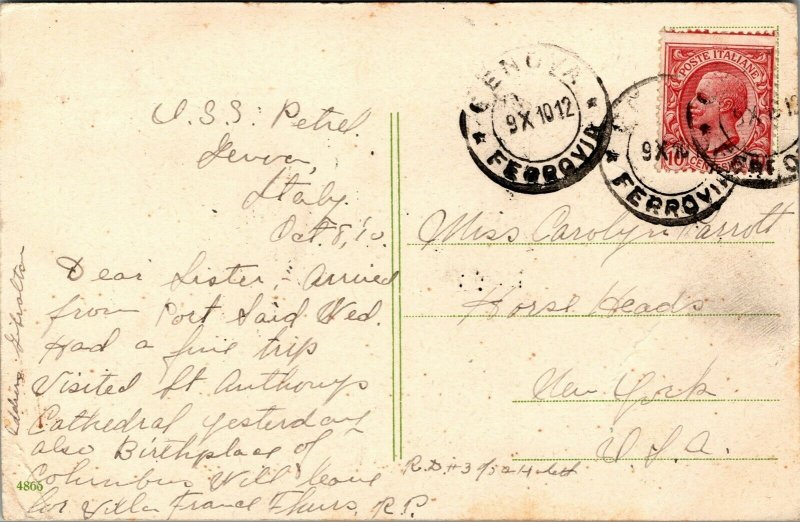 U.S.S. Petrel
Genoa,
Italy
Oct 8, 10
Dear Sister, Arrived
from Port Said Wed.
Had a fine trip
Visited St Anthonys
Cathedral yesterday
also Birthplace of
Columbus Will leave
for Villa France Thurs. R.P.
Address Gibraltar
4866
POSTE ITALIANE
GENOVA
9 X 10 12
FERROVIA
9 X 10
FERROVIA
FERROV
Miss Carolyn Parrott
Horse Heads
New York
U.S.A.
R.D #3